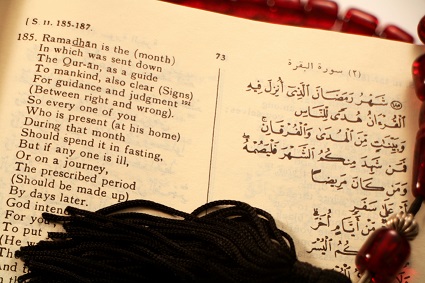 [S II. 185-187.
185. Ramadhān is the (month)
In which was sent down
The Qur-ān, as a guide
To mankind, also clear (Signs)
For guidance and judgment
(Between right and wrong).
So every one of you
Who is present (at his home)
During that month
Should spend it in fasting,
But if any one is ill,
Or on a journey,
The prescribed period
(Should be made up)
By days later.
God
For
To put
(He
The
And
73
(٢) سورة البقرة
شَهْرُ رَمَضَانَ الَّذِي أُنْزِلَ فِيهِ
الْقُرْآنُ هُدًى لِلنَّاسِ
وَبَيِّنَاتٍ مِنَ الْهُدَى وَالْفُرْقَانِ
فَمَنْ شَهِدَ مِنْكُمُ الشَّهْرَ فَلْيَصُمْهُ
وَمَنْ كَانَ مَرِيضًا
أَوْ عَلَى سَفَرٍ
مِنْ أَيَّامٍ أُخَرَ